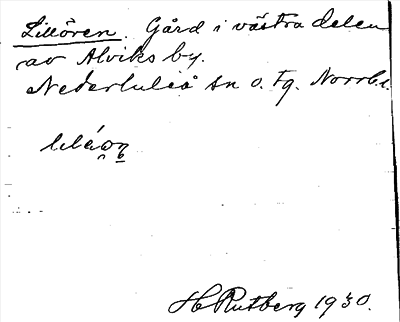 Lillören. Gård i västra delen
av Alviks by.
Nederluleå sn o. tg. Norrb.l.
H Rutberg 1930.